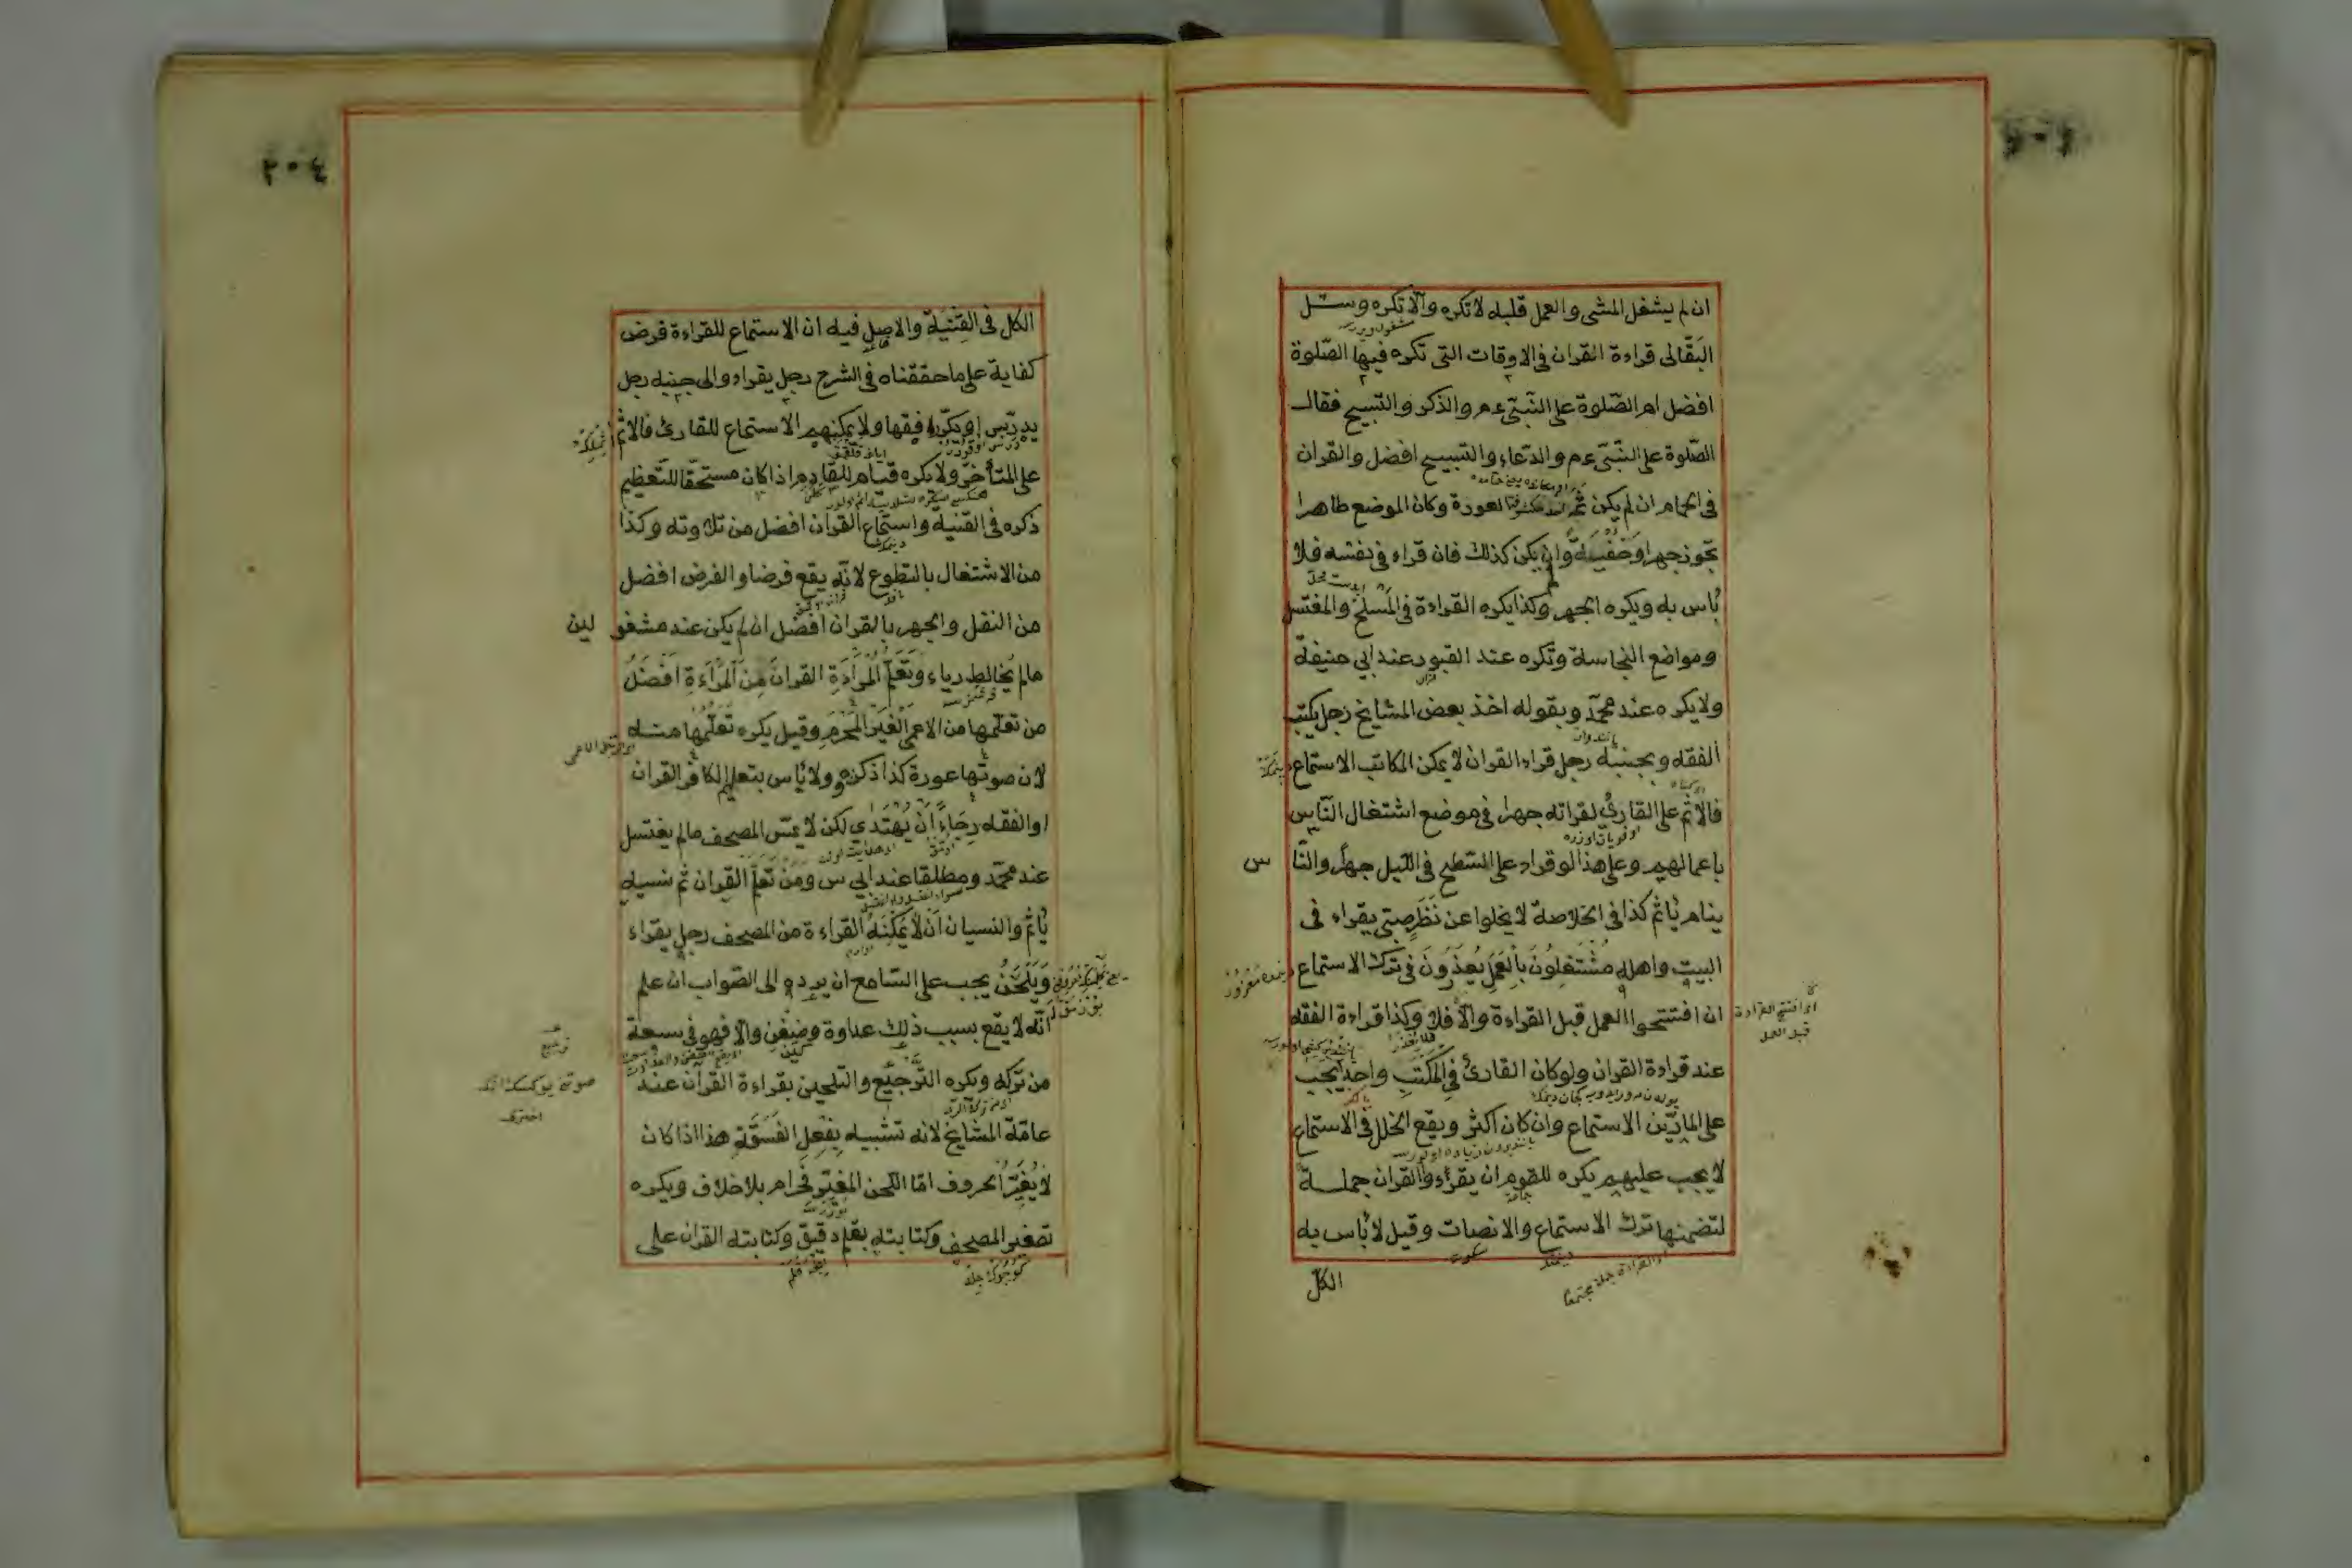 ان لم يشغل المشى والعمل قلبه لا تكره والّا تكره وسئل
البقّالى قراءة القران فى الاوقات التى تكره فيها الصّلوة
افضل ام الصّلوة على النّبىّ عم والذكر والتّسبيح فقال
الصّلوة على النّبىّ عم والدّعاء والتسبيح افضل والقران
فى الحمام ان لم يكن ثمّ احد مكشوف العورة وكان الموضع طاهرا
تجوز جهرا وَخُفْيَةً وان لم يكن كذلك فان قراء فى نفسه فلا
بأس به ويكره الجهر وكذا يكره القراءة فى المَسْلَخ والمغتسل
ومواضع النجاسة وتكره عند القبور عند ابى حنيفة
ولا يكره عند محمّد وبقوله اخذ بعض المشايخ رجل يكتب
الفقه وبجنبه رجل قراء القران لا يمكن الكاتب الاستماع
فالاثم على القارئ لقراته جهرا فى موضع اشتغال النّاس
باعمالهم وعلى هذا لو قراء على السّطح فى اللّيل جهرًا والنّا س
ينام يأثم كذا فى الخلاصة لا يخلوا عن نَظَرٍ صبىّ يقراء فى
البيت واهله مُشْتَغِلُونَ بِالْعَمَلِ يُعْذَرُونَ فى ترك الاستماع
ان افتتحوا العمل قبل القراءة والّا فلا وكذا قراءة الفقه
عند قراءة القران ولو كان القارئ فى المَكْتَبِ واحدًا يجب
على المارّين الاستماع وان كان اكثر ويقع الخلل فى الاستماع
لا يجب عليهم يكره للقوم ان يقرؤا القران جملة
لتضمنها ترك الاستماع والانصات وقيل لا بأس به
سكوت
او القراءة جملة مجتمعا
الكلّ
او افتتح القراءة
قبل العمل
٢٠٤
الكل فى القنية والاصل فيه ان الاستماع للقراءة فرض
كفاية على ما حققناه فى الشرح رجل يقراء والى جنبه رجل
يدرّس او يكرّر فقها ولا يمكنهم الاستماع للقارئ فالاثم
على المتأخر ولا يكره قيام القارئ اذا كان مستحقّا للتّعظيم
ذكره فى القنية واستماع القرآن افضل من تلاوته وكذا
من الاشتغال بالتطوع لانّه يقع فرضا والفرض افضل
من النفل والجهر بالقران افضل ان لم يكن عند مشغو لين
مالم يخالط رياء وتَعَلّم المرأةِ القرانَ مِنَ الْمَرْأةِ اَفْضَلُ
من تعلّمها من الاعمى الغير المَحْرَمِ وقيل يكره تعلّمها منه
لان صوتها عورة كذا ذكره ولا بأس بتعليم الكافر القران
او الفقه رجاءً اَنْ يَهْتَدى لكن لا يمسّ المصحف مالم يغتسل
عند محمّد ومطلقا عند ابى س ومن تعلّم القران ثم نسيه
يأثم والنسيان اَنْ لا يمكنَهُ القراءة من المصحف رجل يقراء
وَيَلْحَنُ يجب على السّامع ان يرده الى الصّواب ان علم
انّه لا يقع بسبب ذلك عداوة وضغن والا فهو فى سعة
من تركه ويكره الترجيْع والتلحين بقراءة القران عند
عامّة المشايخ لانه تشبيه بفعل الفَسَقَةِ هذا اذا كان
لا يُغَيِّرُ الحروف امّا اللّحن المغيّر فحرام بلا خلاف ويكره
تصغير المصحف وكتابته بقلم دقيق وكتابته القران على
ترجيع